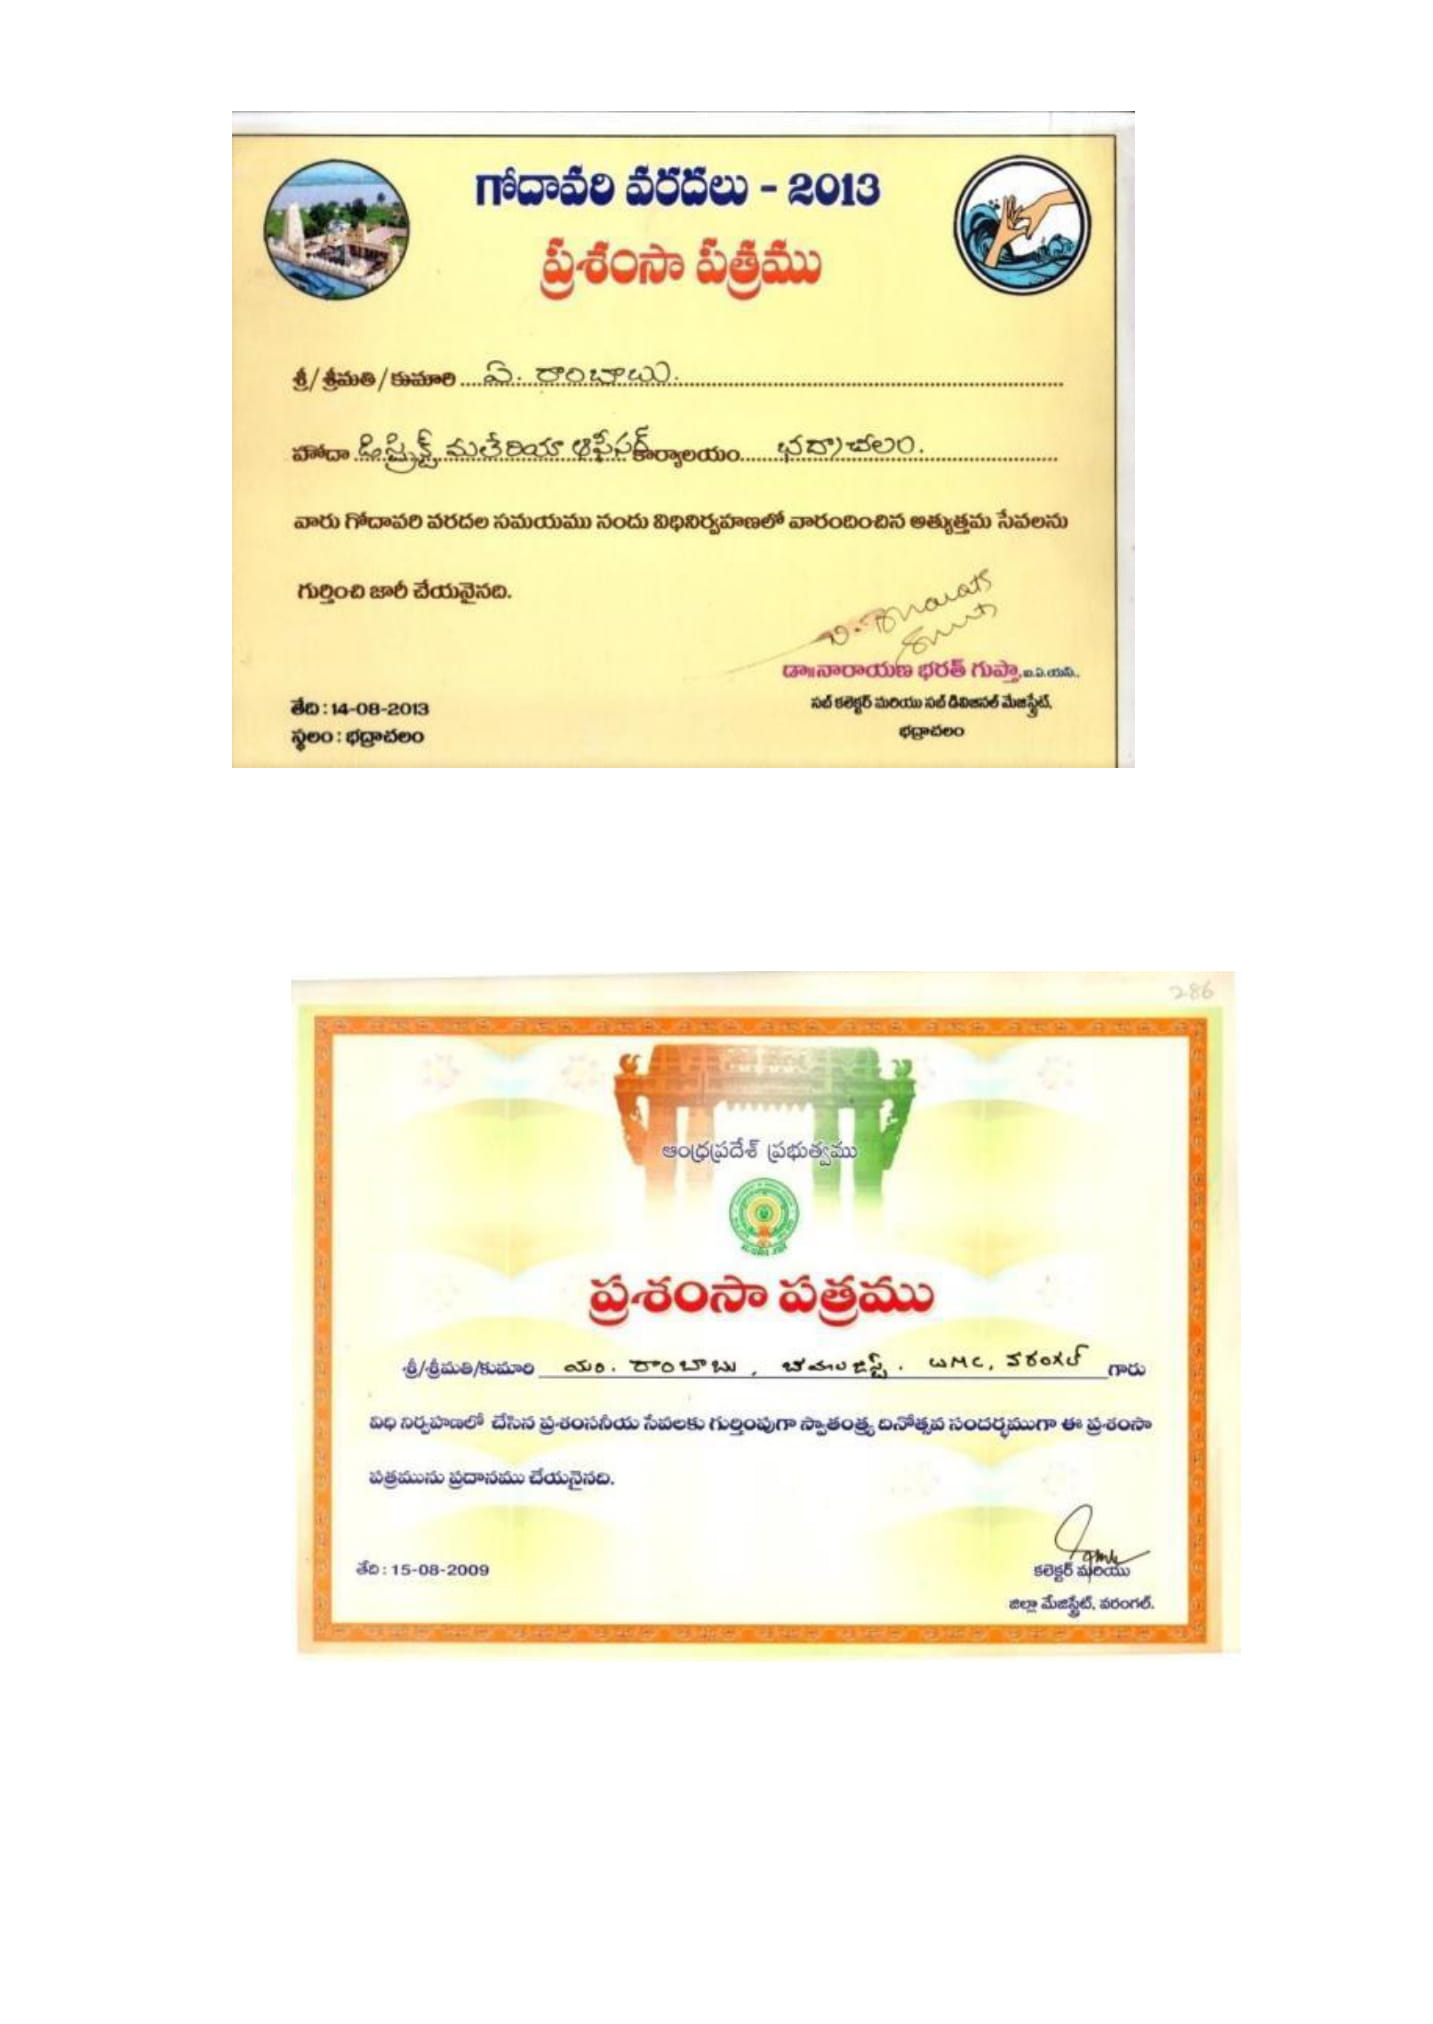 గోదావరి వరదలు - 2013
ప్రశంసా పత్రము
శ్రీ/ శ్రీమతి / కుమారి ఏ. రాంబాబు.
హోదా డిస్ట్రిక్ట్ మలేరియా ఆఫీసర్ కార్యాలయం భద్రాచలం.
వారు గోదావరి వరదల సమయము నందు విధినిర్వహణలో వారందించిన అత్యుత్తమ సేవలను
గుర్తించి జారీ చేయనైనది.
డా॥నారాయణ భరత్ గుప్తా, ఐ.ఏ.యస్.,
సబ్ కలెక్టర్ మరియు సబ్ డివిజనల్ మేజిస్ట్రేట్,
భద్రాచలం
తేది : 14-08-2013
స్థలం : భద్రాచలం
286
ఆంధ్రప్రదేశ్ ప్రభుత్వము
ప్రశంసా పత్రము
శ్రీ/శ్రీమతి/కుమారి యం. రాంబాబు, బయాలజిస్ట్. WMC, వరంగల్ గారు
విధి నిర్వహణలో చేసిన ప్రశంసనీయ సేవలకు గుర్తింపుగా స్వాతంత్ర్య దినోత్సవ సందర్భముగా ఈ ప్రశంసా
పత్రమును ప్రదానము చేయనైనది.
తేది : 15-08-2009
కలెక్టర్ మరియు
జిల్లా మేజిస్ట్రేట్, వరంగల్.